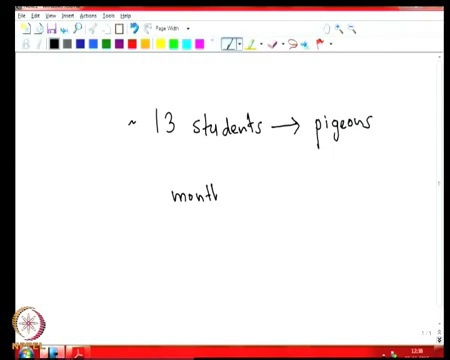 File Edit View Insert Actions Tools Help
Page Width
~ 13 students → pigeons
month
NPTEL
1/1
12:38